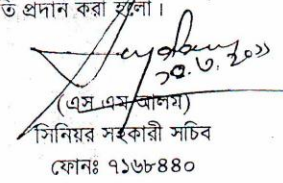 ত প্রদান করা হলো।
১৫.৩.২০১১
(এস এম আলম)
সিনিয়র সহকারী সচিব
ফোনঃ ৭১৬৮৪৪০